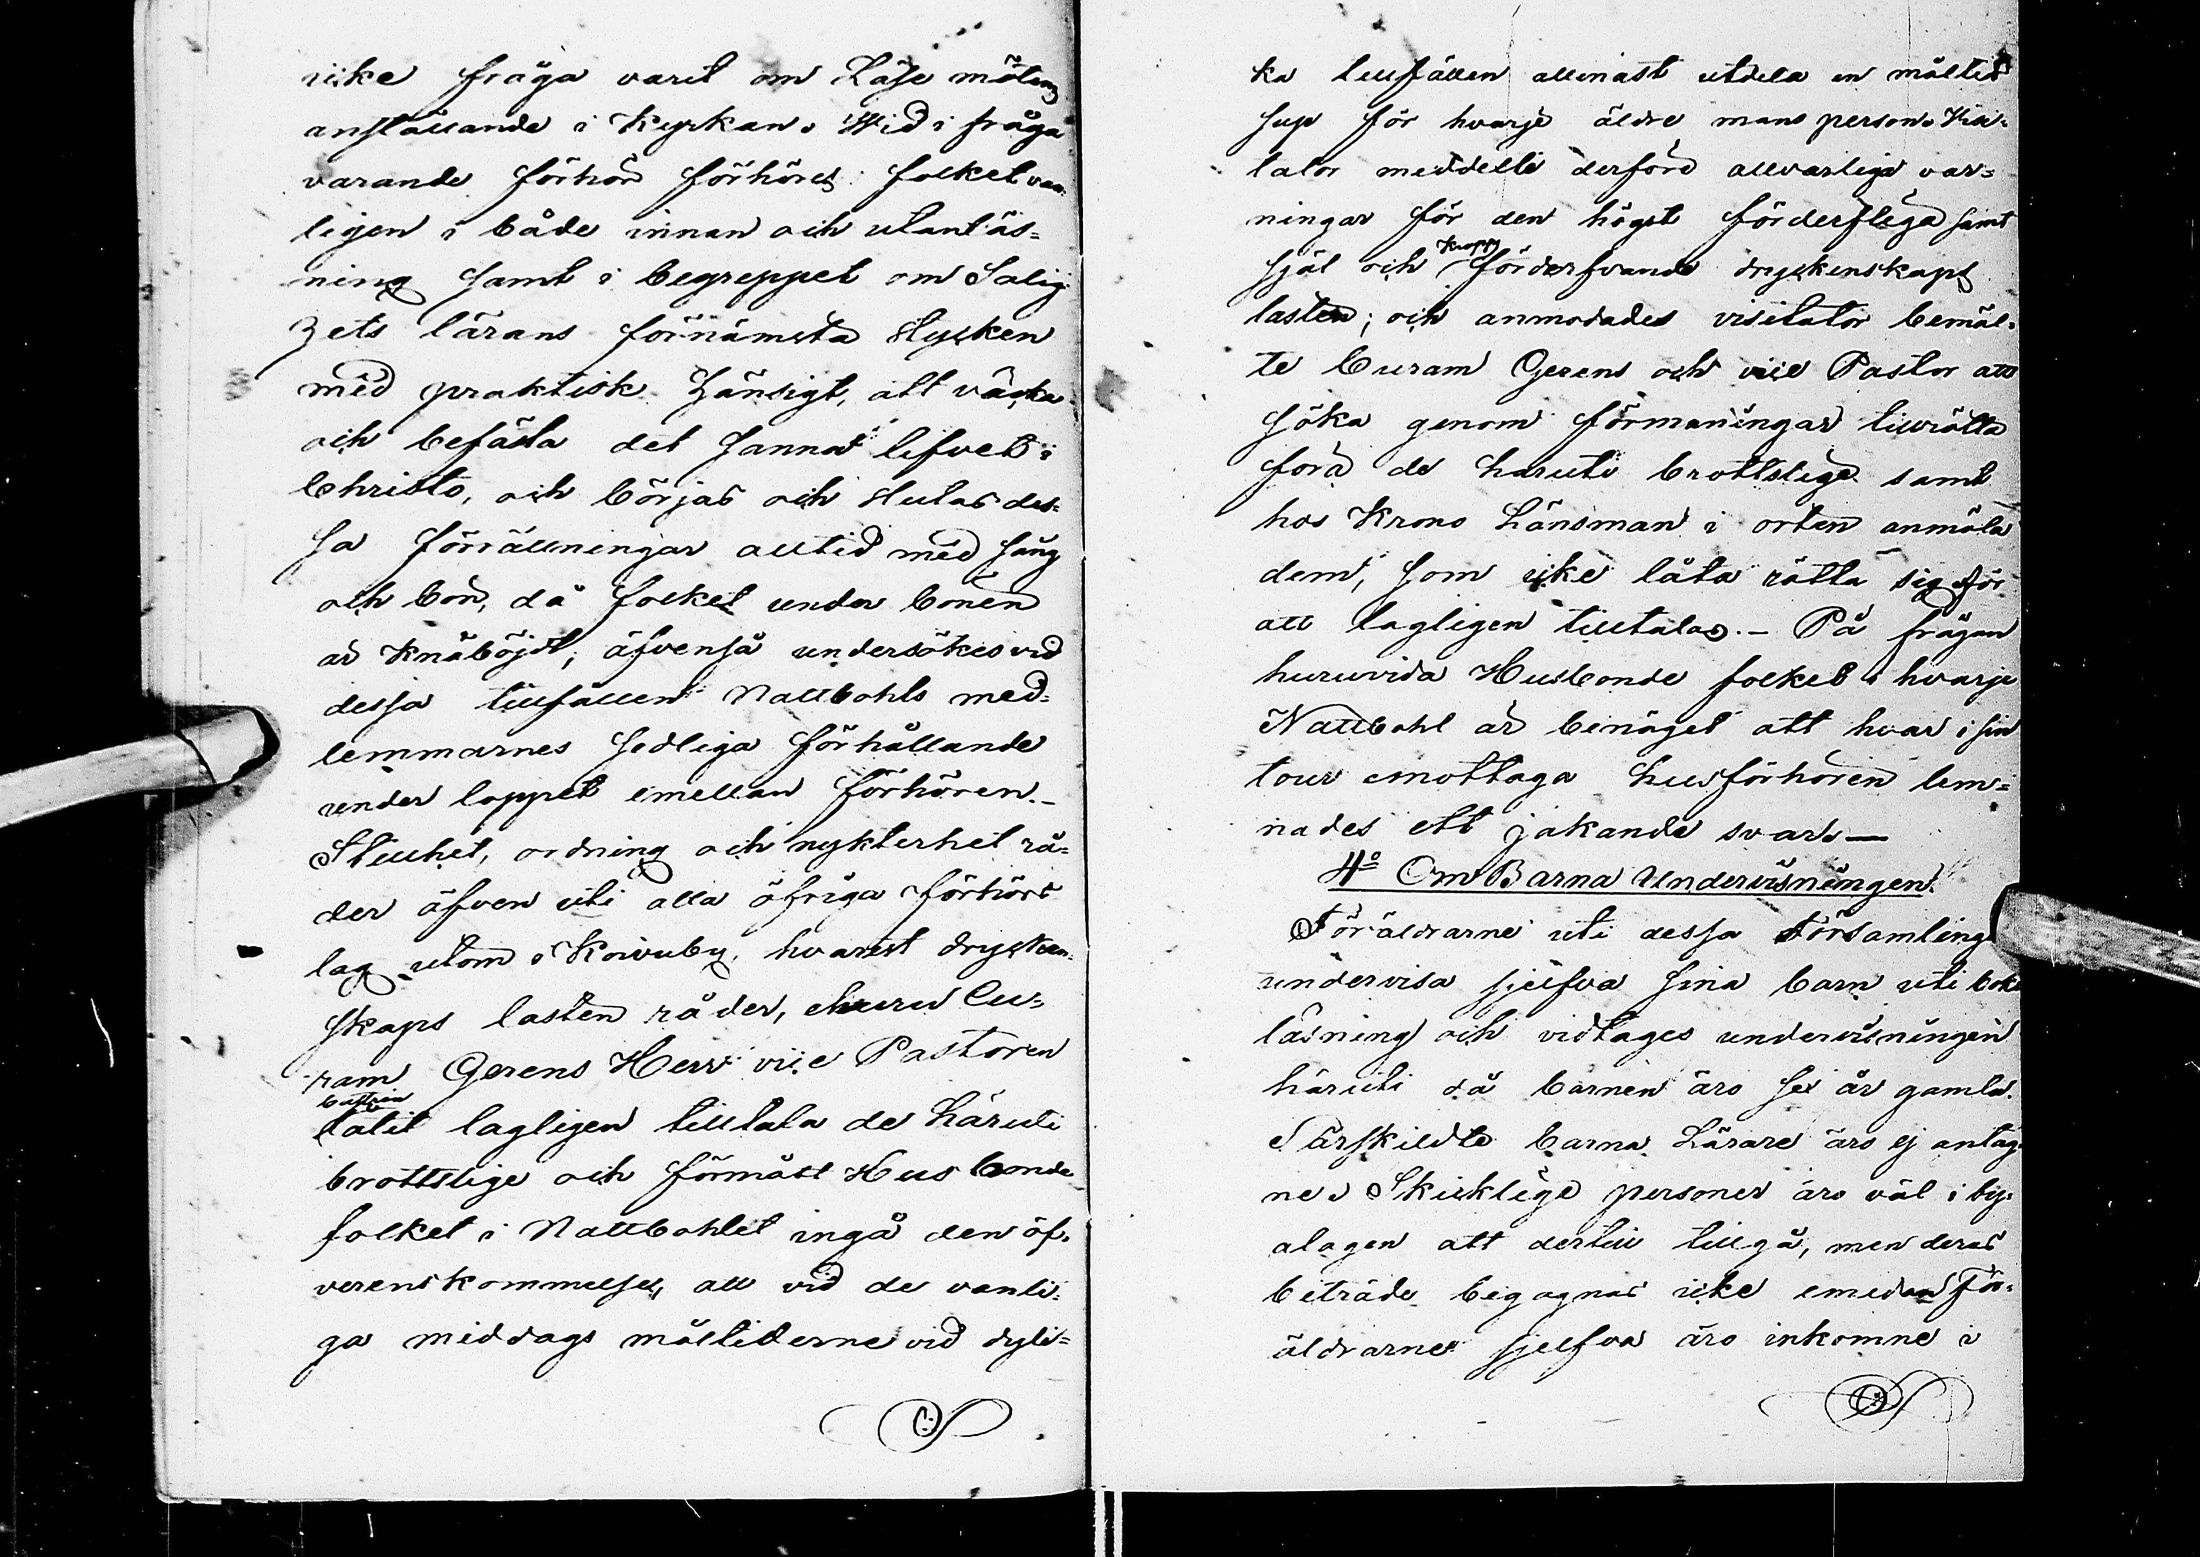 icke fråga varit om Läse mötens
anställande i Kyrkan. Wid i fråga
varande förhör förhöres folket van¬
ligen i både innan och utanläs=
ning samt i begreppet om Salig
hets lärans förnämsta stycken
med praktisk hänsigt, att väcka
och befästa det sanna lifvet i
Christo, och börjas och slutas des=
sa förrättningar alltid med sång
och bön, då folket under bönen
är knäböjdt; äfvenså undersökes vid
dessa tillfällen Nattbohls med=
lemmarnes sedliga förhållande
under loppet emellan förhören.-
Stillhet, ordning och nykterhet rå=
der äfven uti alla öfriga förhörs
lag utom i Koivuby, hvarest drycken=
skaps lasten råder, ehuru Cu=
ram Gerens Herr vice Pastoren
låtit lagligen tilltala de häruti
brottslige och förmått Husbonde
folket i Nattbohlet ingå den öf=
verenskommelse, att vid de vanli=
ga middags måltiderne vid dyli=
ka tillfällen allenast utdela en måltids
sup för hvarje äldre mans person. Visi=
tator meddelte derföre allvarliga var=
ningar för den högst förderfliga samt
själ och kropps förderfvande dryckenskaps
lasten; och anmodades visitator bemäl=
te Curam Gerens och vice Pastor att
söka genom förmaningar tillrätta
föra de häruti brottslige samt
hos Krono Länsman i orten anmäla
dem, som icke låta rätta sig för
att lagligen tilltalas.- På frågan
huruvida Husbonde folket i hvarje
Nattbohl är benäget att hvar i sin
tour emottaga husförhören lem=
nades ett jakande svar.—
4º Om Barna Undervisningen.
Föräldrarne uti dessa Församling
undervisa sjelfva sina barn uti bok
läsning och vidtages undervisningen
häruti då barnen äro sex år gamla.
Särskildte barna Lärare äro ej antag
ne. Skicklige personer äro väl i by=
alagen att dertill tillgå, men deras
beträde begagnas icke emedan För=
äldrarne sjelfva äro inkomne i